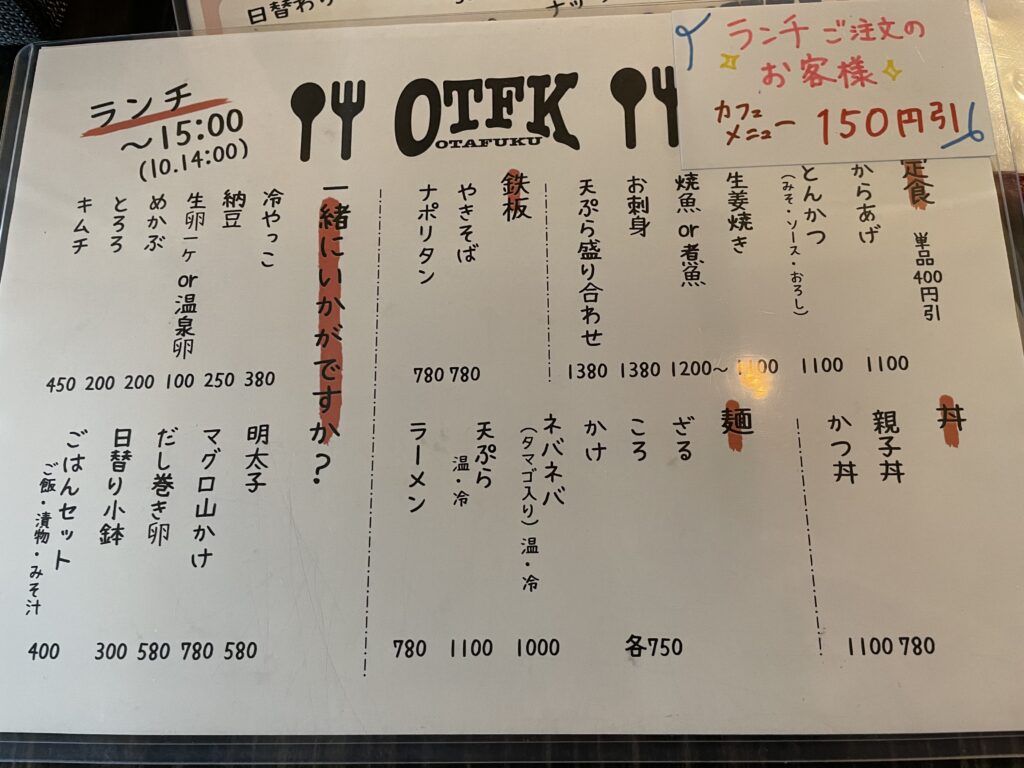 日替わり
ランチ ご注文の
お客様
カフェ
メニュー 150円引
ランチ
～15:00
(10.14:00)
OTFK
OTAFUKU
定食 単品400円引
からあげ 1100
とんかつ 1100
(みそ・ソース・おろし)
生姜焼き 1100
焼魚 or 煮魚 1200～
お刺身 1380
天ぷら盛り合わせ 1380
鉄板
やきそば 780
ナポリタン 780
一緒にいかがですか?
冷やっこ 380
納豆 250
生卵一ケ or 温泉卵 100
めかぶ 200
とろろ 200
キムチ 450
丼
親子丼 780
かつ丼 1100
麺
ざる
ころ
かけ
各750
ネバネバ 1000
(タマゴ入り) 温・冷
天ぷら 1100
温・冷
ラーメン 780
明太子 580
マグロ山かけ 780
だし巻き卵 580
日替り小鉢 300
ごはんセット 400
ご飯・漬物・みそ汁